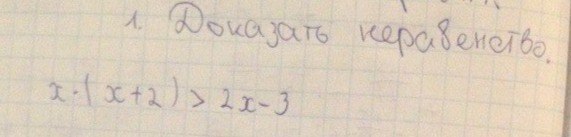 1. Доказать неравенство.
x·(x+2) > 2x-3